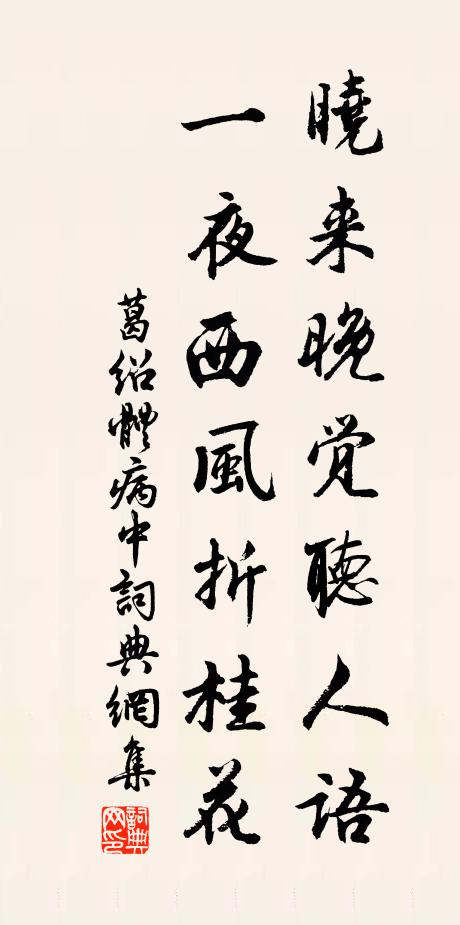 曉来晚覚聽人語
一夜西風折桂花
葛紹體病中詞典網集
詞典網印